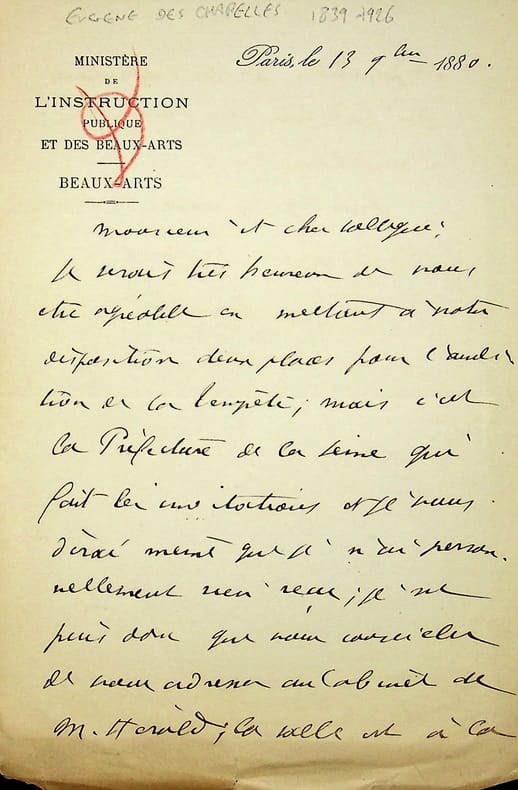 EUGENE DES CHAPELLES 1839-1926
MINISTÈRE
DE
L'INSTRUCTION
PUBLIQUE
ET DES BEAUX-ARTS
BEAUX-ARTS
Paris, le 13 9bre 1880.
Monsieur et cher collègue,
Je serais très heureux de vous
être agréable en mettant à votre
disposition deux places pour l'audi-
tion de la Tempête; mais c'est
la Préfecture de la Seine qui
fait les invitations et je vous
dirai même que je n'ai person-
nellement rien reçu; je ne
puis donc que vous conseiller
de vous adresser au Cabinet de
M. Hérold; la salle est à la